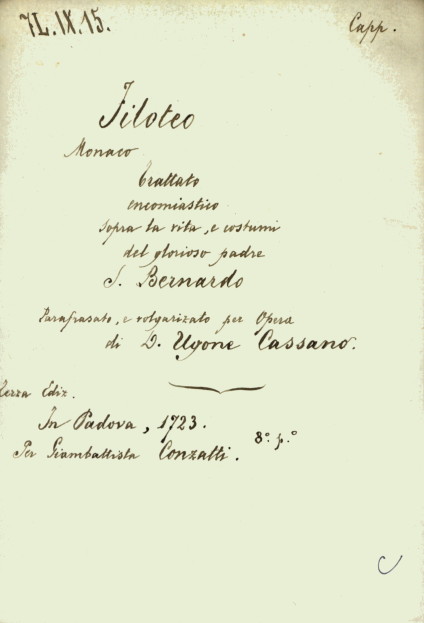 7L.IX.15.
Capp.
Filoteo
Monaco
Trattato
encomiastico
sopra la vita, e costumi
del glorioso padre
S. Bernardo
Parafrasato, e volgarizato per Opera
di D. Ugone Cassano.
Terza Ediz.
In Padova, 1723.
Per Giambattista Conzatti. 8º. p.º